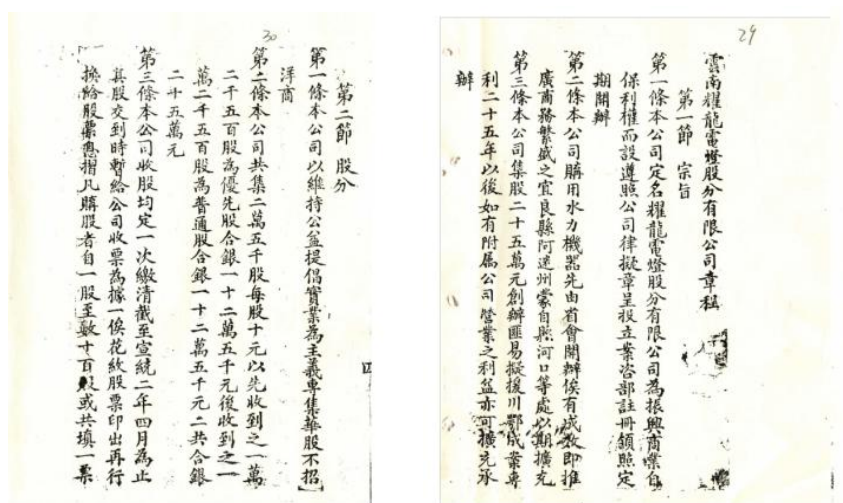 29
雲南耀龍電燈股分有限公司章程
第一節 宗旨
第一條本公司定名耀龍電燈股分有限公司為振興商業自
保利權而設遵照公司律擬章呈投立案咨部註冊領照定
期開辦
第二條本公司購用水力機器先由省會開辦俟有成效即推
廣商務繁盛之宜良縣阿迷州蒙自縣河口等處以期擴充
第三條本公司集股二十五萬元創辦匪易擬援川鄂成案專
利二十五年以後如有附属公司營業之利益亦可擴充承
辦
30
第二節 股分
第一條本公司以維持公益提倡實業為主義專集華股不招
洋商
第二條本公司共集二萬五千股每股十元以先收到之一萬
二千五百股為優先股合銀一十二萬五千元後收到之一
萬二千五百股為普通股合銀一十二萬五千元二共合銀
二十五萬元
第三條本公司收股均定一次繳清截至宣統二年四月為止
其股交到時暫給公司收票為據一俟花紋股票印出再行
換給股票息摺凡購股者自一股至數十百股或共填一票
四